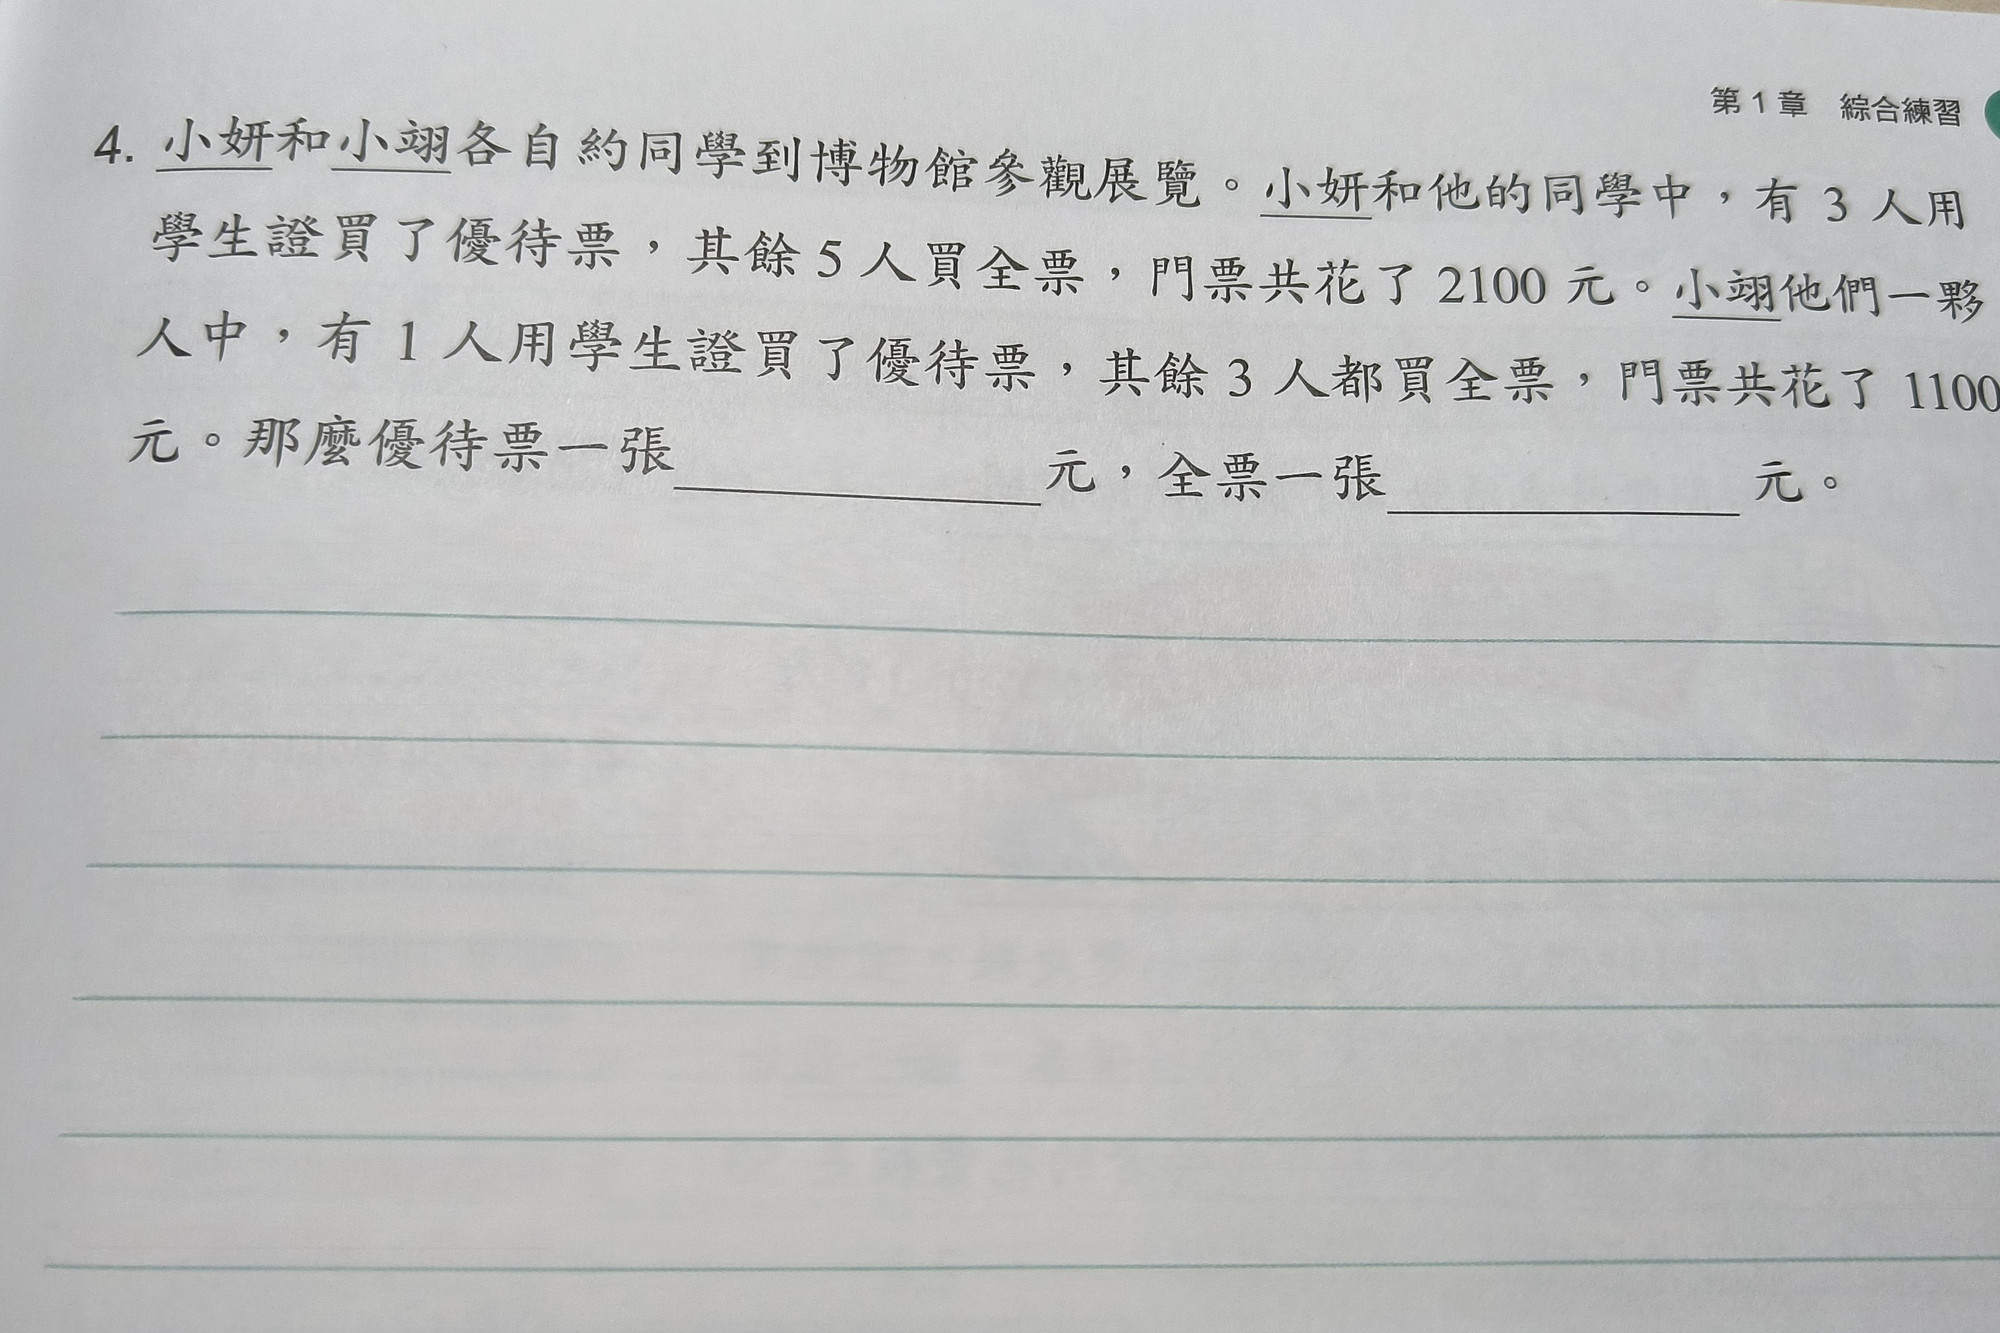 第 1 章 綜合練習
4. 小妍和小翊各自約同學到博物館參觀展覽。小妍和他的同學中，有 3 人用
學生證買了優待票，其餘 5 人買全票，門票共花了 2100 元。小翊他們一夥
人中，有 1 人用學生證買了優待票，其餘 3 人都買全票，門票共花了 1100
元。那麼優待票一張＿＿＿＿＿＿元，全票一張＿＿＿＿＿＿元。